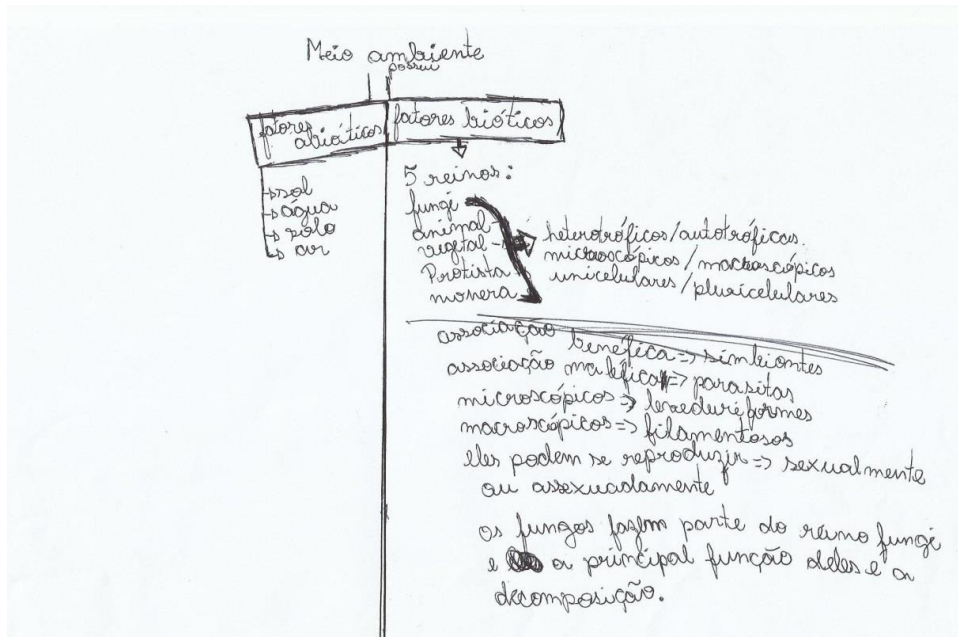 Meio ambiente
possui
fatores
abióticos
fatores bióticos
→ sol
→ água
→ solo
→ ar
5 reinos:
fungi
animal
vegetal
Protista
monera
heterotróficos/autotróficos.
microscópicos/macroscópicos
unicelulares/pluricelulares
associação benéfica => simbiontes
associação maléfica => parasitas
microscópicos => leveduriformes
macroscópicos => filamentosos
eles podem se reproduzir => sexualmente
ou assexuadamente
os fungos fazem parte do reino fungi
e a principal função deles e a
decomposição.